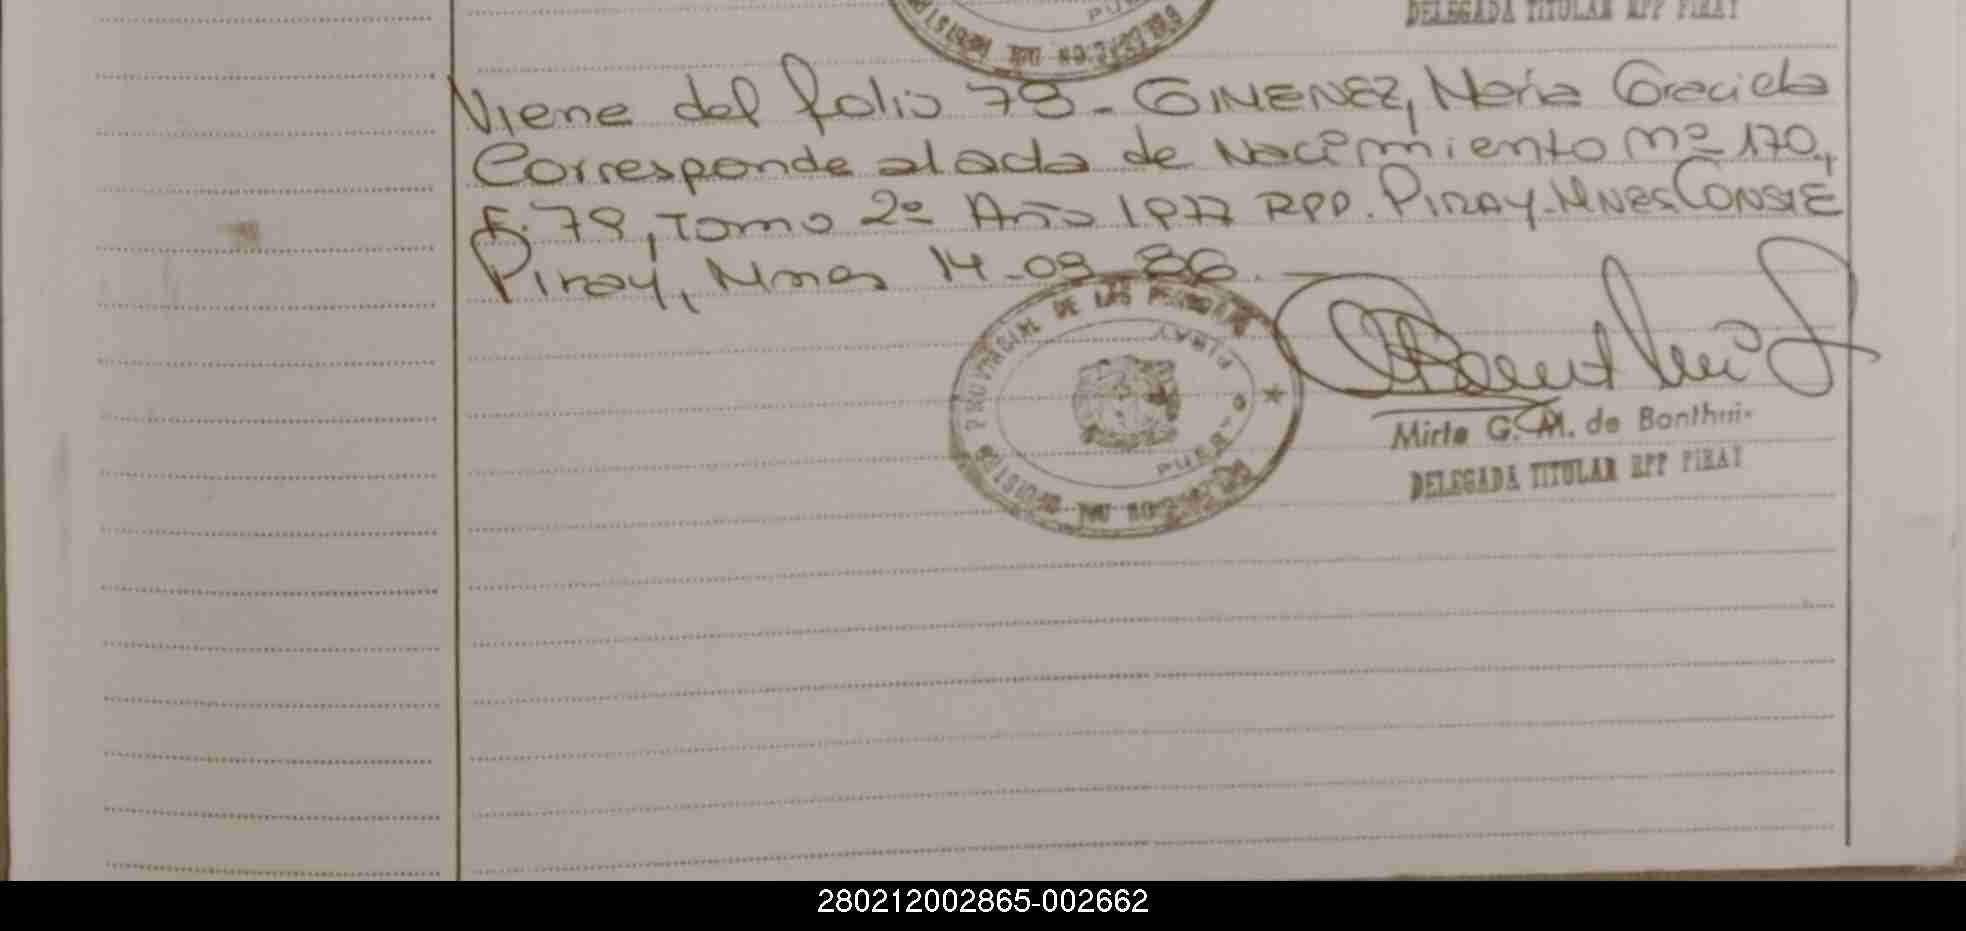 DELEGADA TITULAR RPP PIRAY
Viene del folio 79 - GIMENEZ, Maria Graciela
Corresponde al acta de Nacimiento nº 170,
F. 79, Tomo 2º Año 1977 RPP. PIRAY-MNES CONSTE
Piray, Mnes 14-09-86.
REGISTRO PROVINCIAL DE LAS PERSONAS
PUERTO PIRAY
Mirta G. M. de Bonthui
DELEGADA TITULAR RPP PIRAY
280212002865-002662